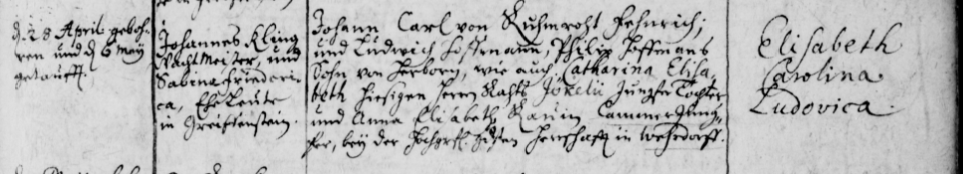 d. 28 April geboh-
ren und d 6 May
getaufft.
Johannes Kling
Wachtmeister, und
Sabina Frideri-
ca, Eheleute
in Greiffenstein.
Johann Carl von Ruhmroht Fehnrich;
und Ludwich Hoffmann, Philip Hoffmans
Sohn von Herborn, wie auch Catharina Elisa-
beth hiesigen Herrn Rahts Jökelii Jungfr Tochter
und Anna Elisabeth Cammer Jung-
fer, bey der Herschafft in Wehrdorff.
Elisabeth
Carolina
Ludovica.